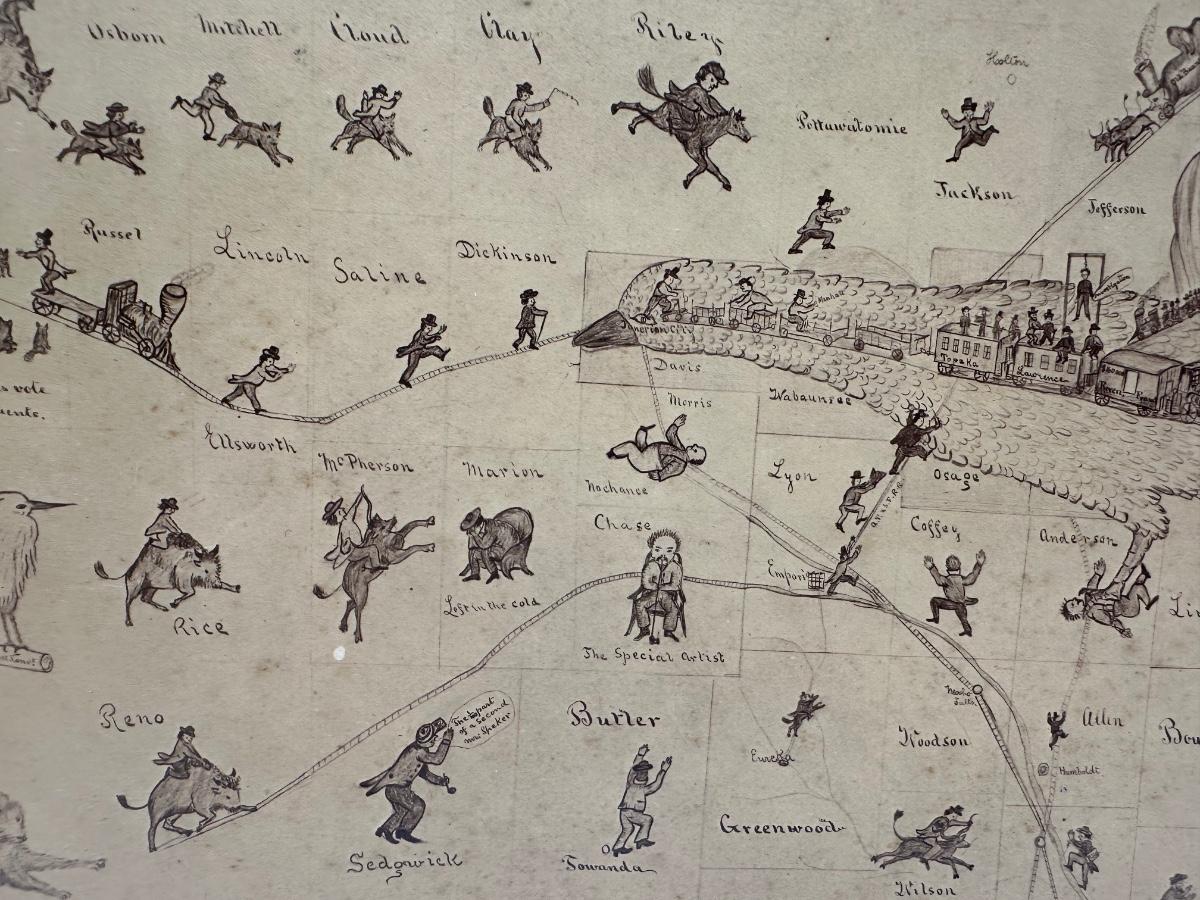 Osborn
Mitchell
Cloud
Clay
Riley
Holton
Pottawatomie
Jackson
Jefferson
Russel
Lincoln
Saline
Dickinson
Junction City
Manhatt
Topeka
Lawrence
Davis
Morris
Wabaunsee
vote
Ellsworth
McPherson
Marion
Nochance
Lyon
Osage
Chase
Coffey
Anderson
Empori
Lost in the cold
Rice
The Special Artist
Reno
The part
of a second
Butler
Neosho
Falls
Allen
Woodson
Eureka
Humboldt
Greenwood
Sedgwick
Towanda
Wilson